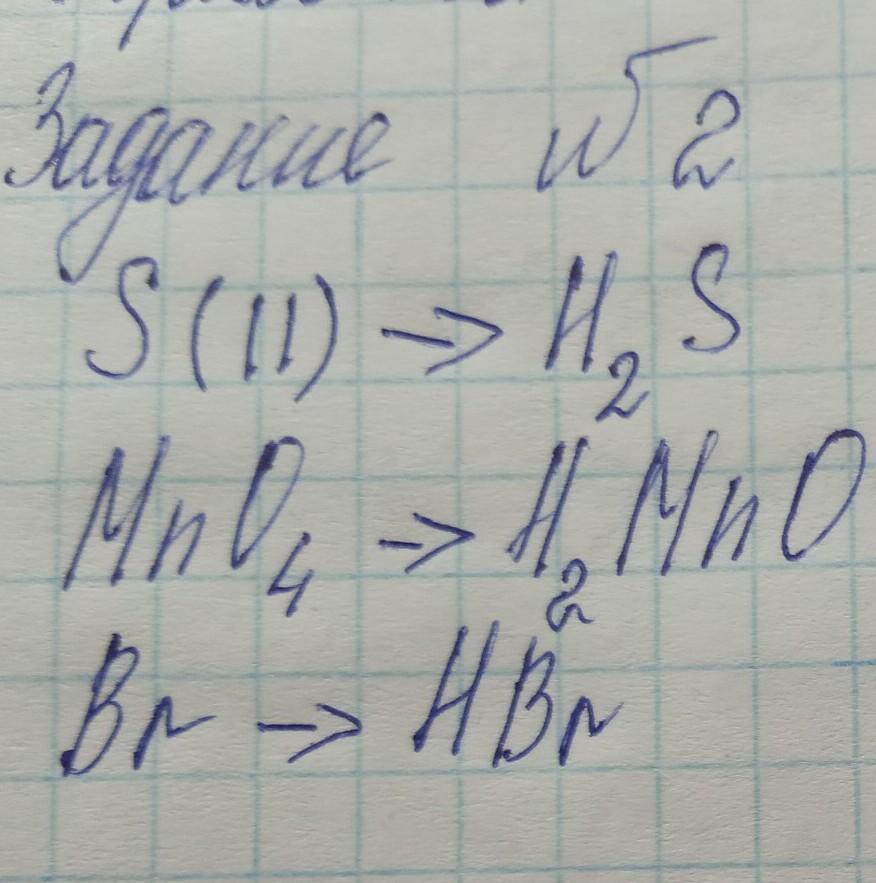 Задание № 2
S (II) → H₂S
MnO₄ → H₂MnO
Br → HBr